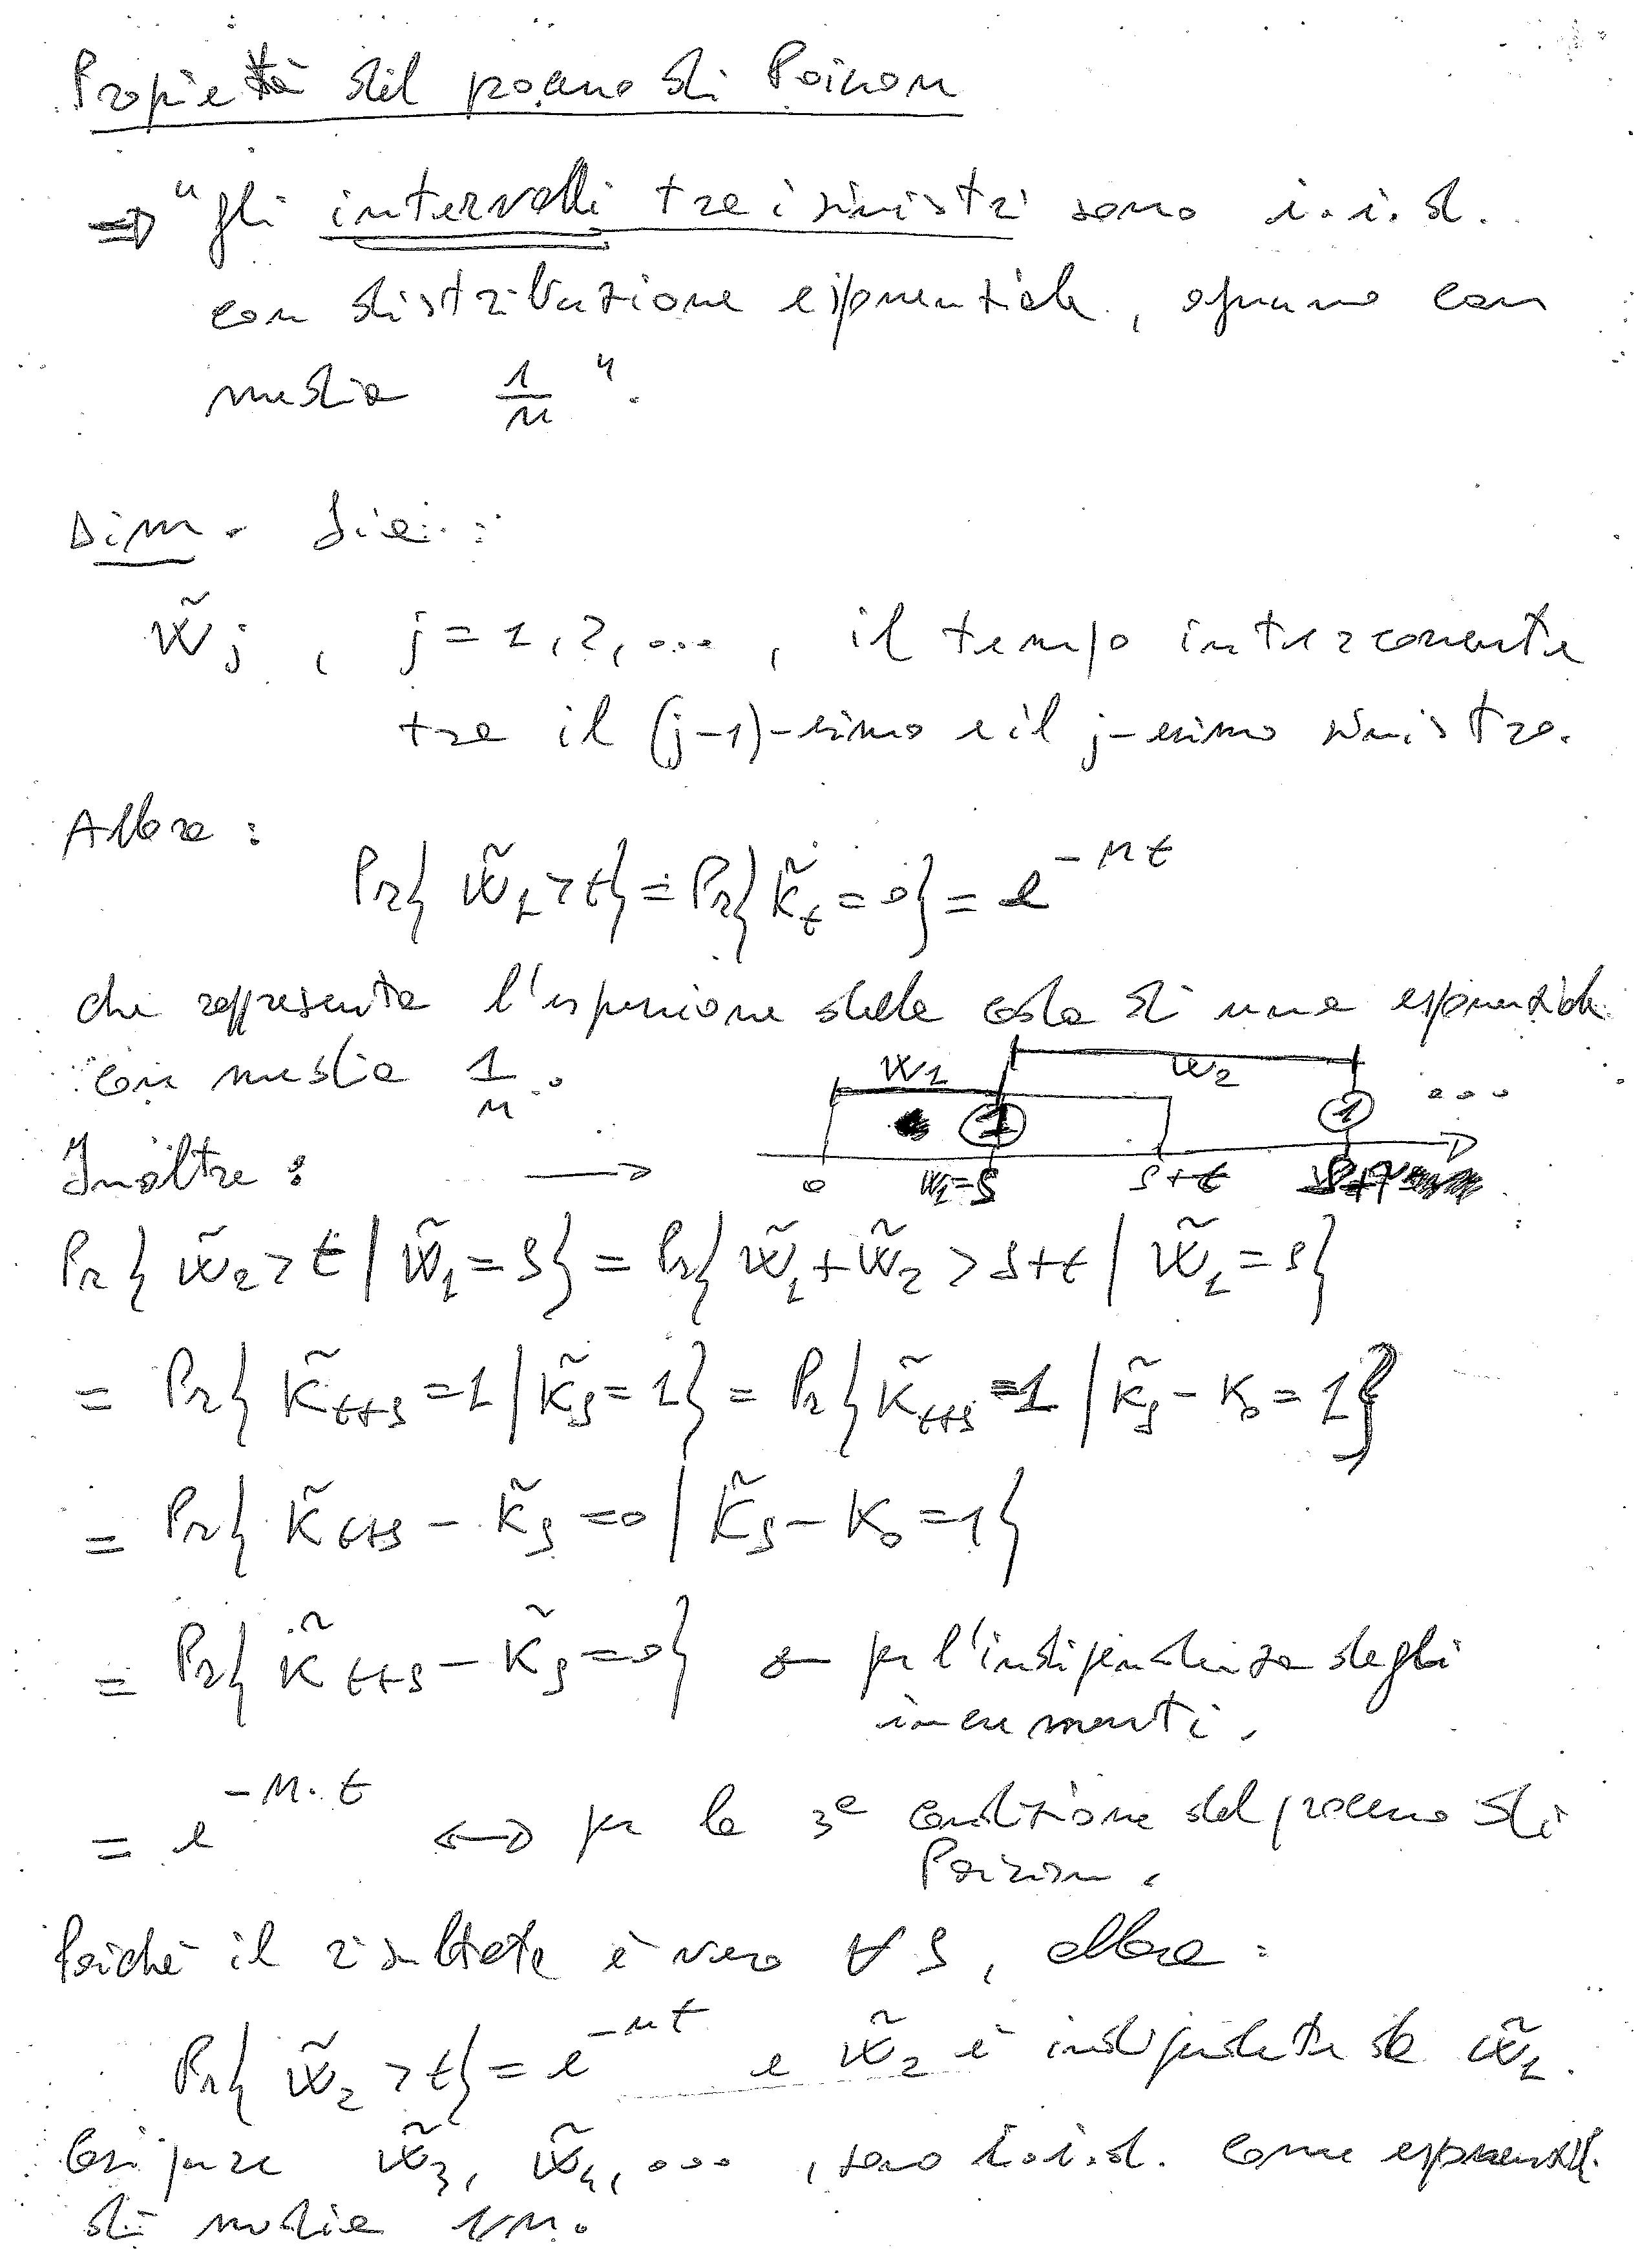 Proprietà del processo di Poisson
⇒ "gli intervalli tra i sinistri sono i.i.d.
con distribuzione esponenziale, ognuno con
media 1/μ".
Dim. Sia:
W̃j, j=1,2,..., il tempo intercorrente
tra il (j-1)-esimo e il j-esimo sinistro.
Allora:
Pr{W̃1>t}=Pr{K̃t=0}=e^-μt
che rappresenta l'espressione della coda di una esponenziale
con media 1/μ.
W1 W2
1 1 ...
Inoltre: →
0 W1=s s+t
Pr{W̃2>t|W̃1=s}=Pr{W̃1+W̃2>s+t|W̃1=s}
=Pr{K̃t+s=1|K̃s=1}=Pr{K̃t+s=1|K̃s-K0=1}
=Pr{K̃t+s-K̃s=0|K̃s-K0=1}
=Pr{K̃t+s-K̃s=0} ← per l'indipendenza degli
incrementi.
=e^-μ·t ↔ per la 3ª condizione del processo di
Poisson.
Poiché il risultato è vero ∀s, allora:
Pr{W̃2>t}=e^-μt e W̃2 è indipendente da W̃1.
Così pure W̃3, W̃4,..., sono i.i.d. come esponenziali
di media 1/μ.